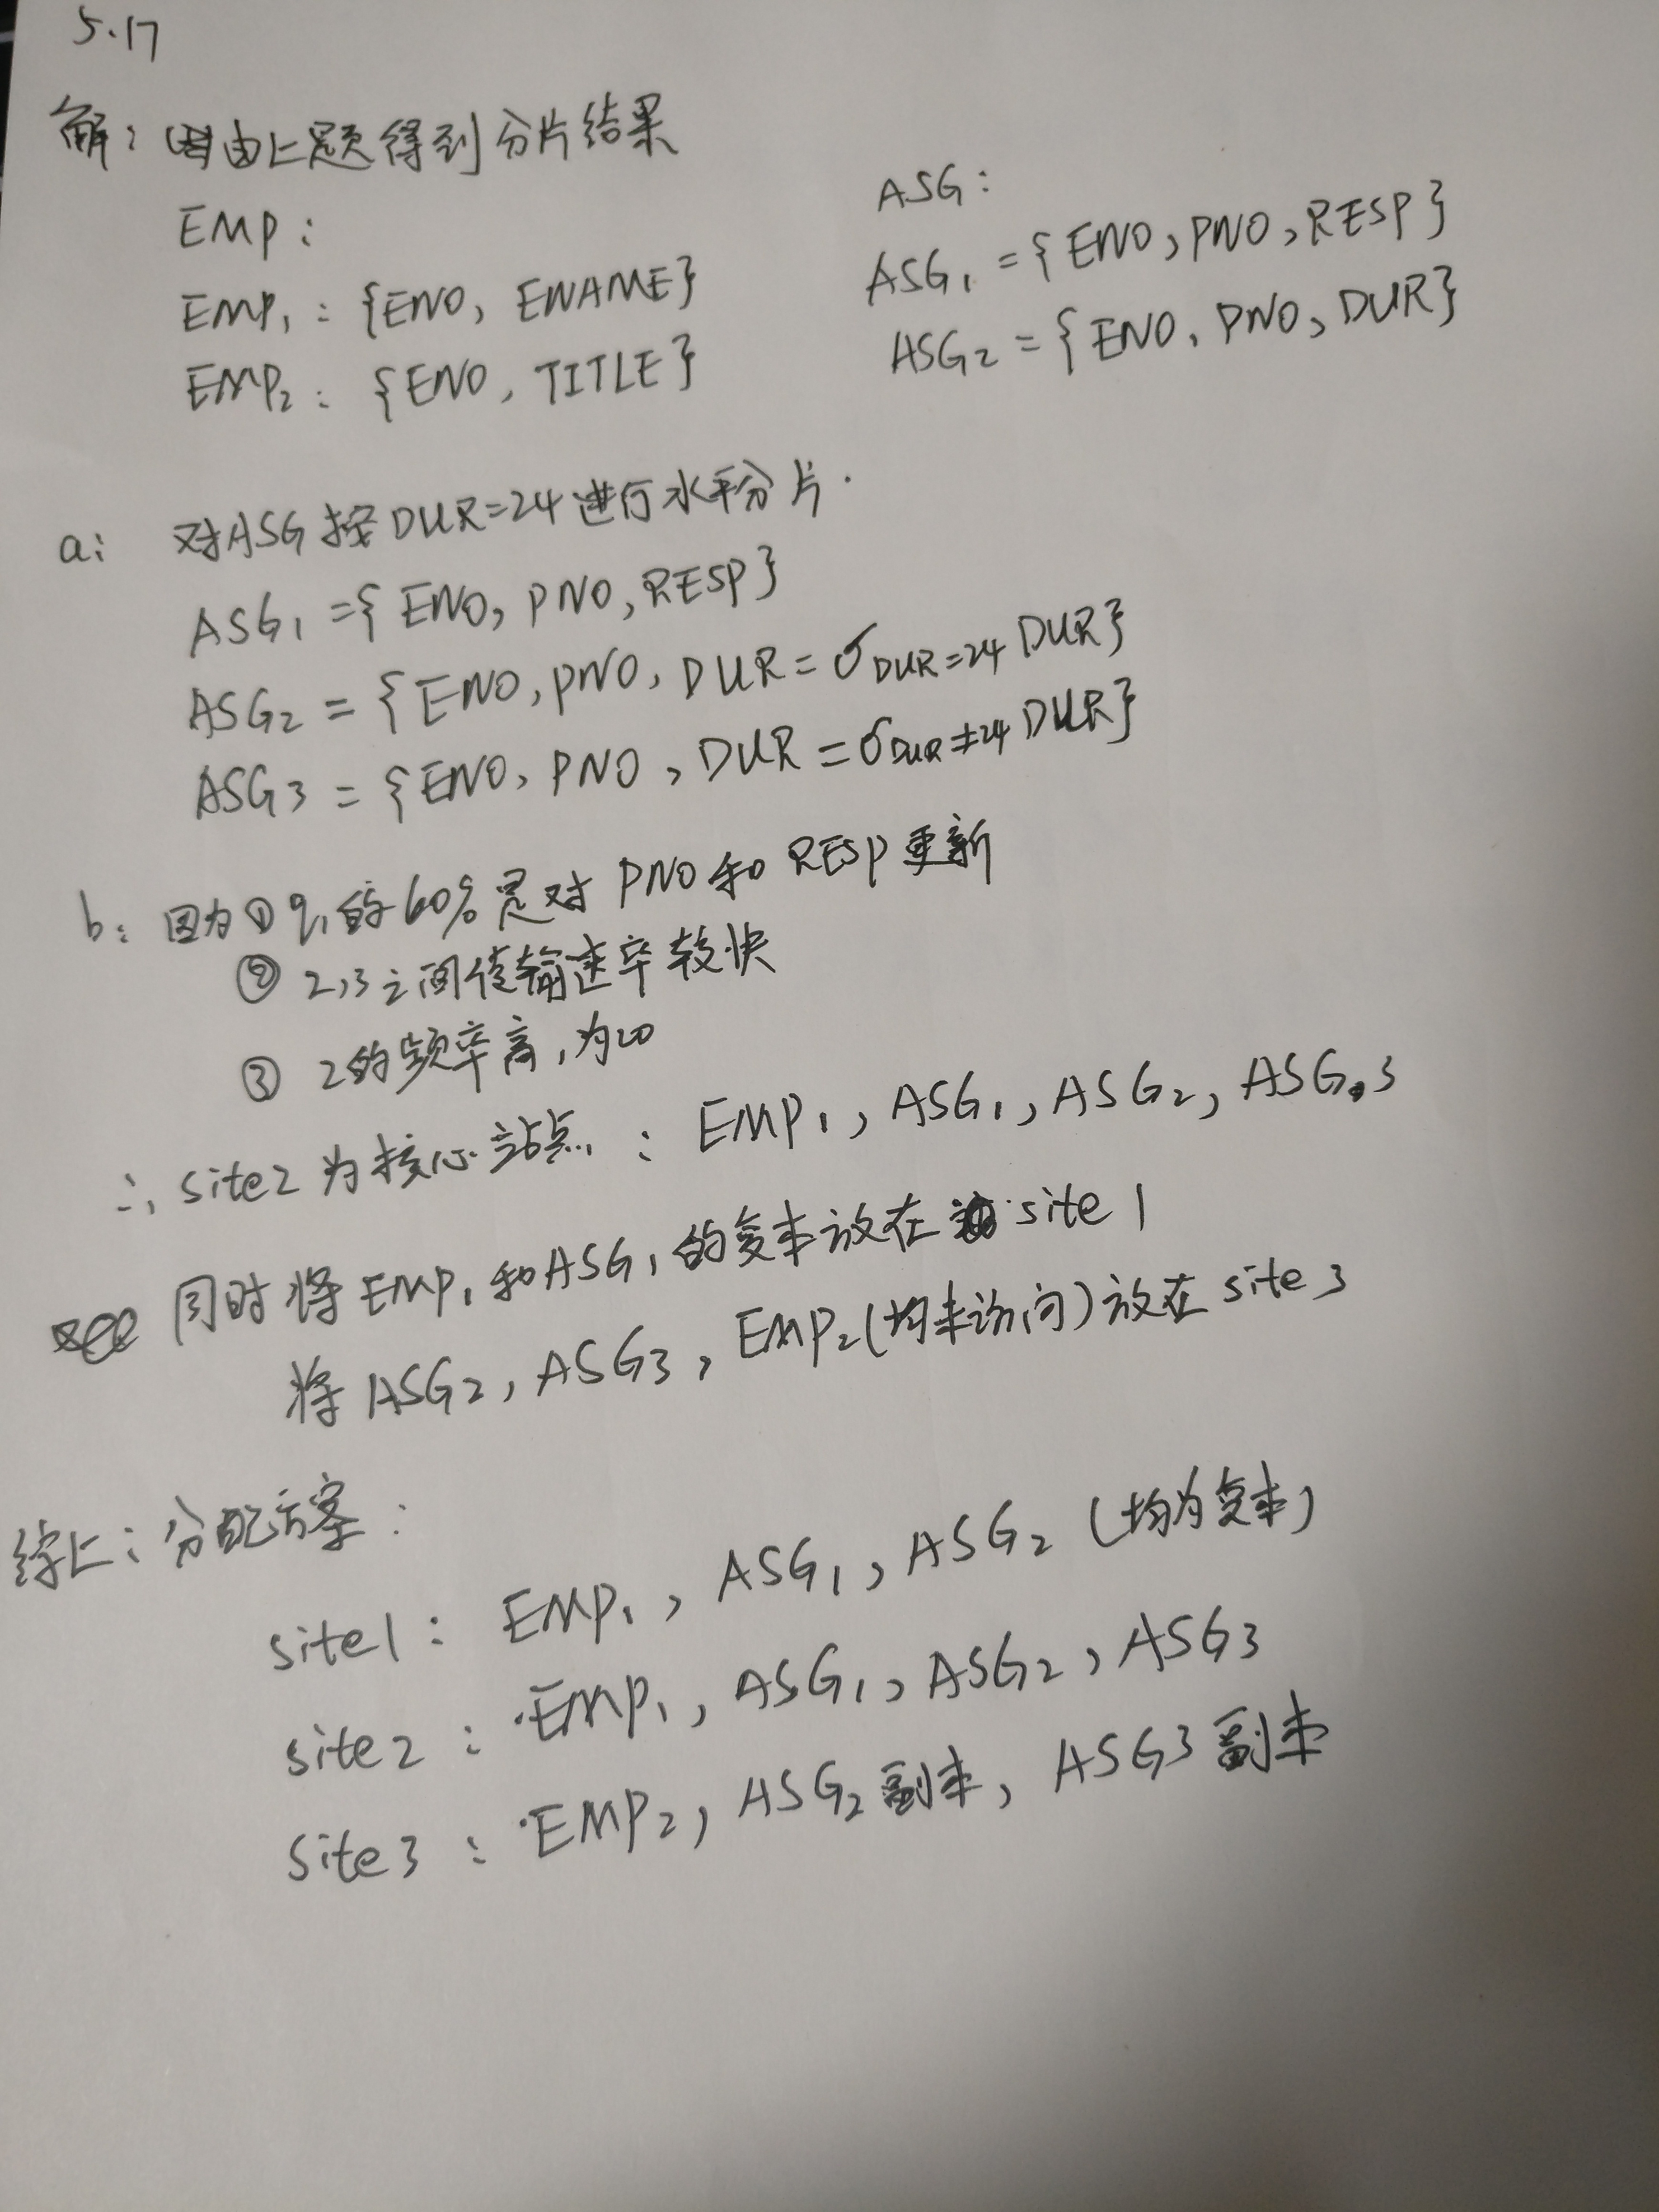 5.17
解：由上题得到分片结果
EMP：
EMP₁：{ENO, ENAME}
EMP₂：{ENO, TITLE}
ASG：
ASG₁ = {ENO, PNO, RESP}
ASG₂ = {ENO, PNO, DUR}
a: 对ASG按DUR=24进行水平分片.
ASG₁ = {ENO, PNO, RESP}
ASG₂ = {ENO, PNO, DUR = σDUR=24 DUR}
ASG3 = {ENO, PNO, DUR = σDUR≠24 DUR}
b: 因为①q₁的60%是对PNO和RESP更新
② 2,3之间传输速率较快
③ 2的频率高,为20
∴ site2为核心站点：EMP₁, ASG₁, ASG₂, ASG3
同时将EMP₁和ASG₁的复本放在site 1
将ASG₂, ASG3, EMP₂(均未访问)放在site 3
综上：分配方案：
site1：EMP₁, ASG₁, ASG₂ (均为复本)
site2：EMP₁, ASG₁, ASG₂, ASG3
site3：EMP₂, ASG₂副本, ASG3副本